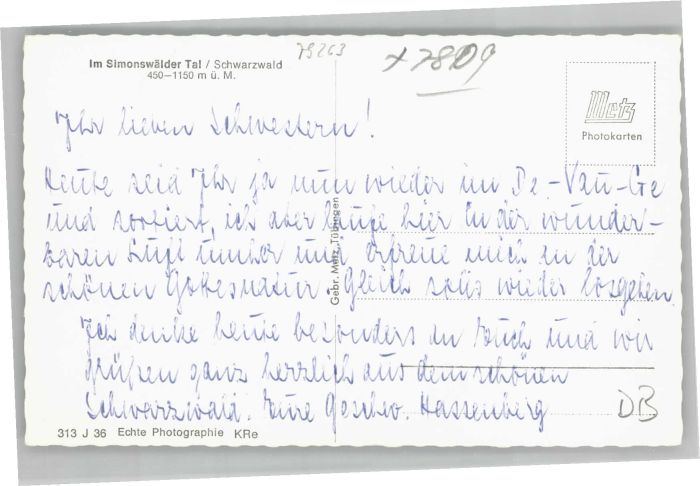 Im Simonswälder Tal / Schwarzwald
450—1150 m ü. M.
79263
x7809
Metz
Photokarten
Ihr lieben Schwestern!
Heute seid Ihr ja nun wieder im De-Vau-Ge
und sortiert, ich aber laufe hier in der wunder-
baren Luft umher und erfreue mich an der
schönen Gottesnatur. Gleich solls wieder losgehen.
Ich denke heute besonders an Euch und wir
grüßen ganz herzlich aus dem schönen
Schwarzwald. Eure Geschw. Hassenberg
Gebr. Metz, Tübingen
DB
313 J 36 Echte Photographie KRe